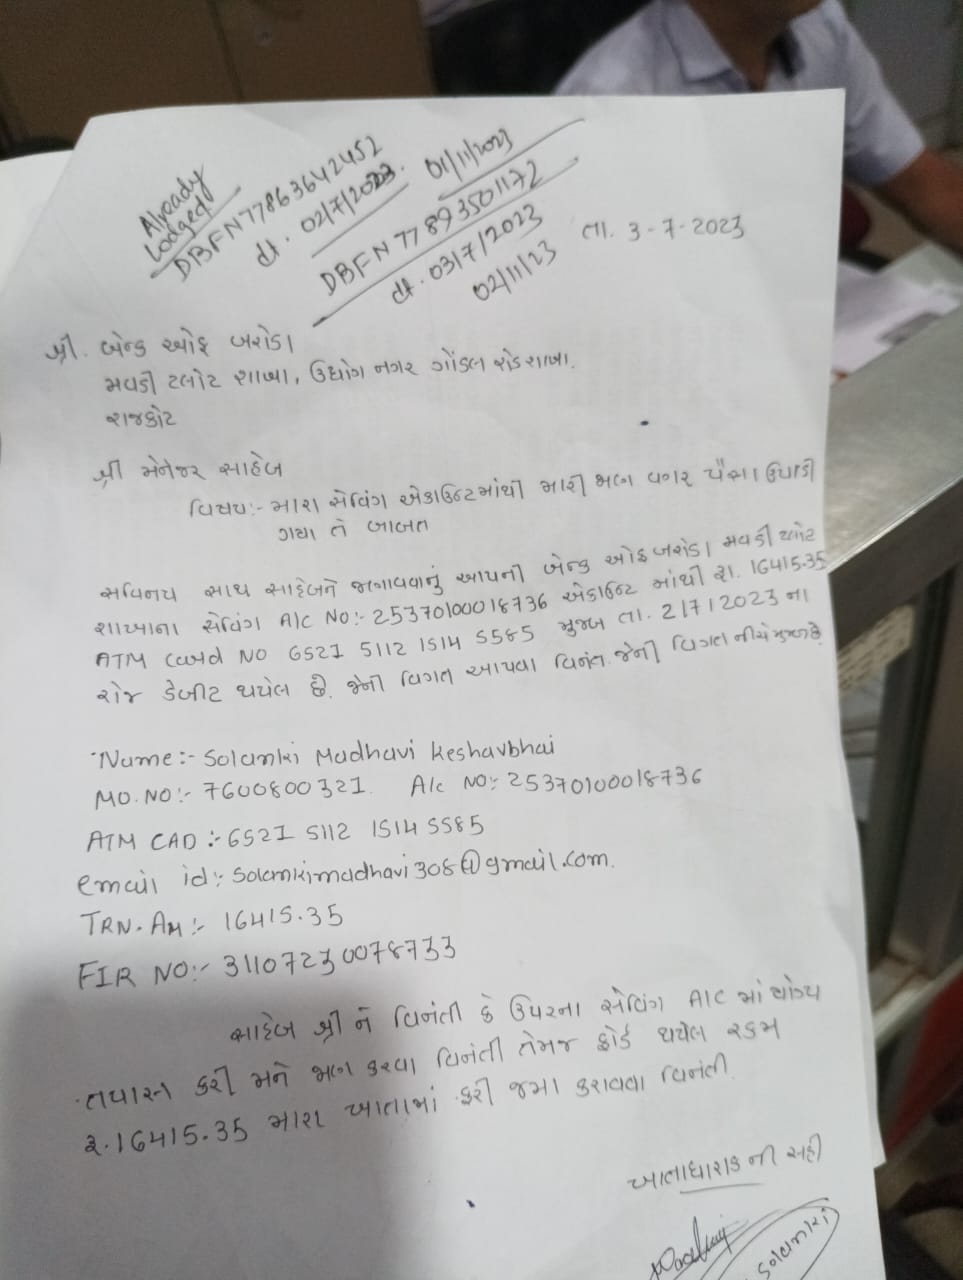 Already
Lodged
DBFN77863642452
dt. 02/7/2023.
01/11/2023
DBFN77893501172
dt. 03/7/2023
02/11/23
તા. 3-7-2023
શ્રી. બેન્ક ઓફ બરોડા
મવડી પ્લોટ શાખા, ઉદ્યોગ નગર ગોંડલ રોડ શાખા.
રાજકોટ
શ્રી મેનેજર સાહેબ
વિષય:- મારા સેવિંગ એકાઉન્ટમાંથી મારી જાણ વગર પૈસા ઉપાડી
ગયા તે બાબત
સવિનય સાથ સાહેબને જણાવવાનું આપની બેન્ક ઓફ બરોડા મવડી પ્લોટ
શાખાના સેવિંગ A/c NO:- 25370100018736 એકાઉન્ટ માંથી રૂા. 16415.35
ATM Card NO 6521 5112 1514 5585 મુજબ તા. 2/7/2023 ના
રોજ ડેબીટ થયેલ છે. જેની વિગત આપવા વિનંતિ. જેની વિગત નીચે મુજબ છે.
Name:- Solanki Madhavi Keshavbhai
MO.NO:- 7600800321. A/c NO:- 25370100018736
ATM CAD:- 6521 5112 1514 5585
email id:- Solankimadhavi308@gmail.com.
TRN.AM:- 16415.35
FIR NO:- 31107230078733
સાહેબ શ્રી ને વિનંતી કે ઉપરના સેવિંગ A/C માં યોગ્ય
તપાસ કરી મને જાણ કરવા વિનંતી તેમજ ફ્રોર્ડ થયેલ રકમ
રૂ.16415.35 મારા ખાતામાં ફરી જમા કરાવવા વિનંતી.
ખાતાધારક ની સહી
Solanki